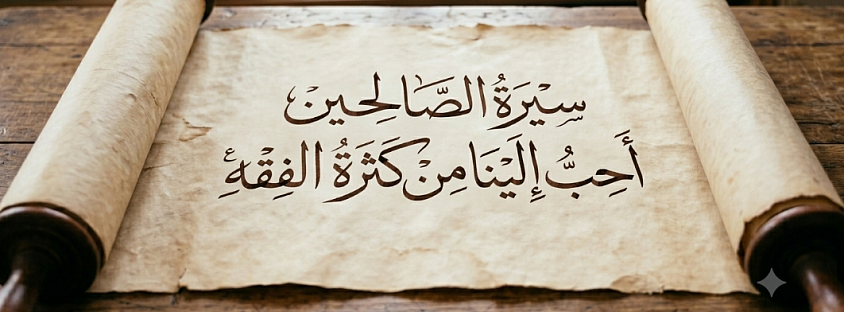 سِيْرَةُ الصَّالِحين
أَحِبُّ إِلَيْنَا مِنْ كَثرَةُ الفِقْهِ